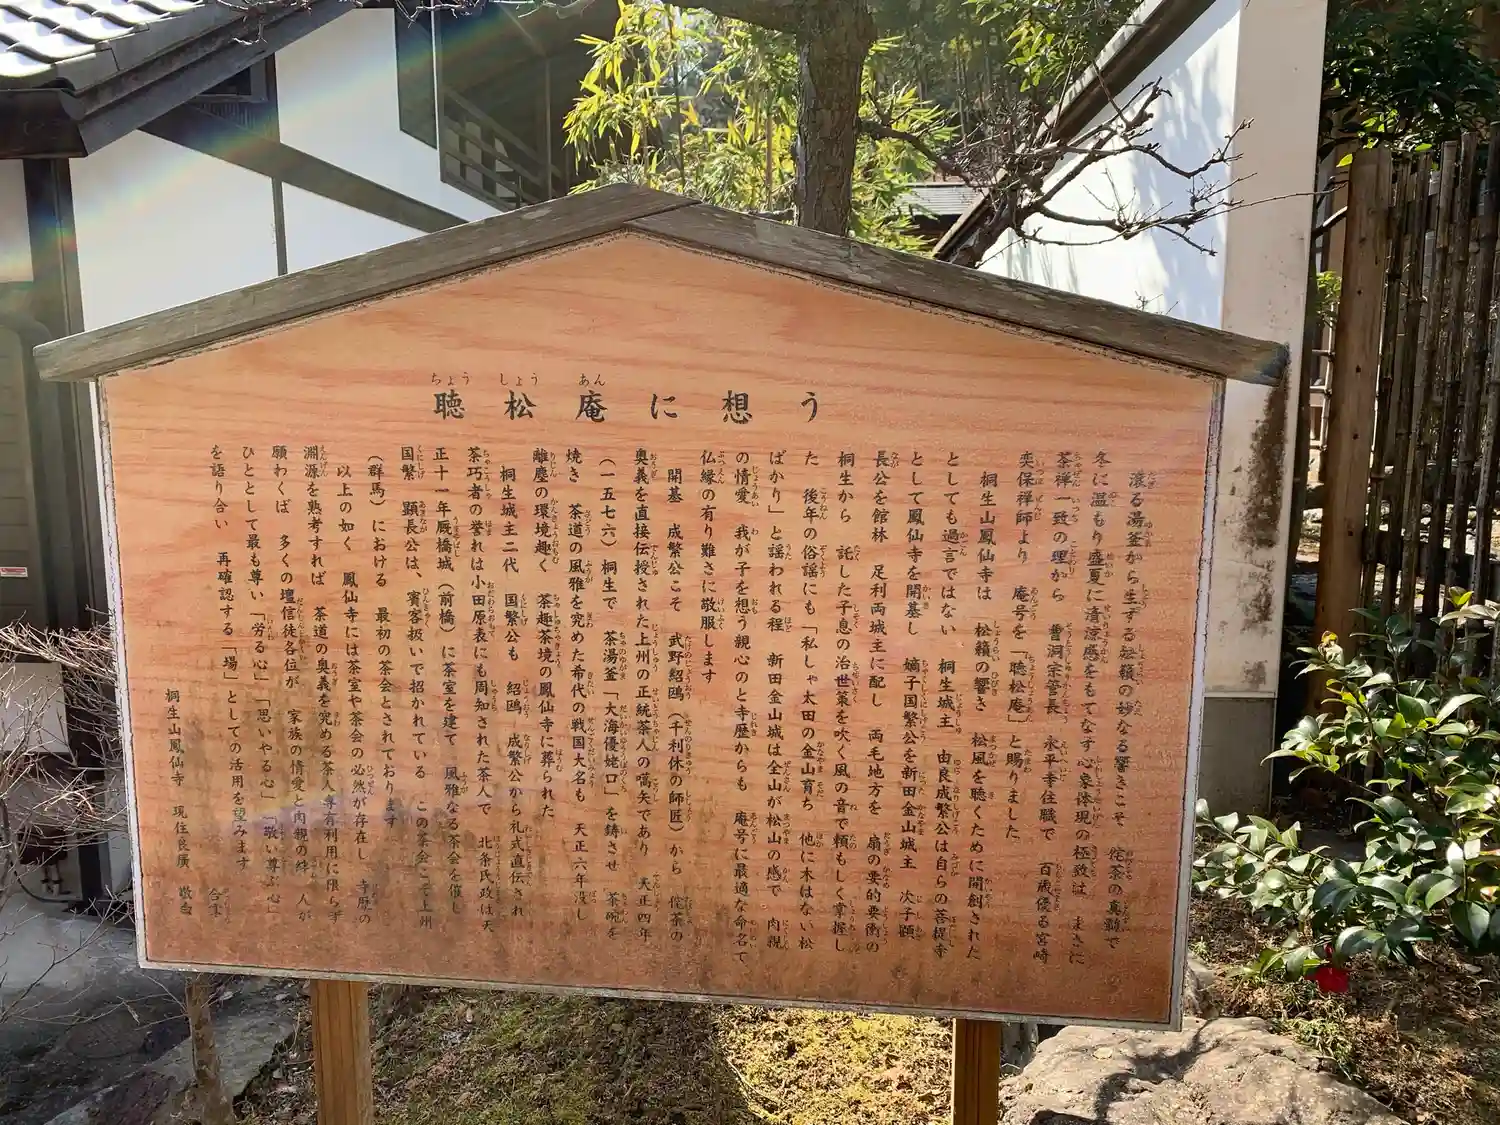 聴松庵に想う
滾る湯釜から生ずる松籟の妙なる響きこそ 侘茶の真髄で
冬に温もり盛夏に清涼感をもてなす心象体現の極致は まさに
茶禅一致の理から 曹洞宗管長 永平寺住職で 百歳優る宮崎
奕保禅師より 庵号を「聴松庵」と賜りました
桐生山鳳仙寺は 松籟の響き 松風を聴くために開創された
としても過言ではない 桐生城主 由良成繁公は自らの菩提寺
として鳳仙寺を開基し 嫡子国繁公を新田金山城主 次子顕
長公を館林 足利両城主に配し 両毛地方を 扇の要的要衝の
桐生から 託した子息の治世策を吹く風の音で頼もしく掌握し
た 後年の俗謡にも「私しゃ太田の金山育ち 他に木はない松
ばかり」と謡われる程 新田金山城は全山が松山の感で 肉親
の情愛 我が子を想う親心のと寺歴からも 庵号に最適な命名で
仏縁の有り難さに敬服します
開基 成繁公こそ 武野紹鴎(千利休の師匠)から 侘茶の
奥義を直接伝授された上州の正統茶人の嚆矢であり 天正四年
(一五七六)桐生で 茶湯釜「大海優姥口」を鋳させ 茶碗を
焼き 茶道の風雅を究めた希代の戦国大名も 天正六年没し
離塵の環境趣く 茶趣茶境の鳳仙寺に葬られた
桐生城主二代 国繁公も 紹鴎 成繁公から礼式直伝され
茶巧者の誉れは小田原表にも周知された茶人で 北条氏政は天
正十一年厩橋城(前橋)に茶室を建て 風雅なる茶会を催し
国繁 顕長公は、賓客扱いで招かれている この茶会こそ上州
(群馬)における 最初の茶会とされております
以上の如く 鳳仙寺には茶室や茶会の必然が存在し 寺歴の
淵源を熟考すれば 茶道の奥義を究める茶人専有利用に限らず
願わくば 多くの壇信徒各位が 家族の情愛と肉親の絆 人が
ひととして最も尊い「労る心」「思いやる心」「敬い尊ぶ心」
を語り合い 再確認する「場」としての活用を望みます
合掌
桐生山鳳仙寺 現住良廣 敬白